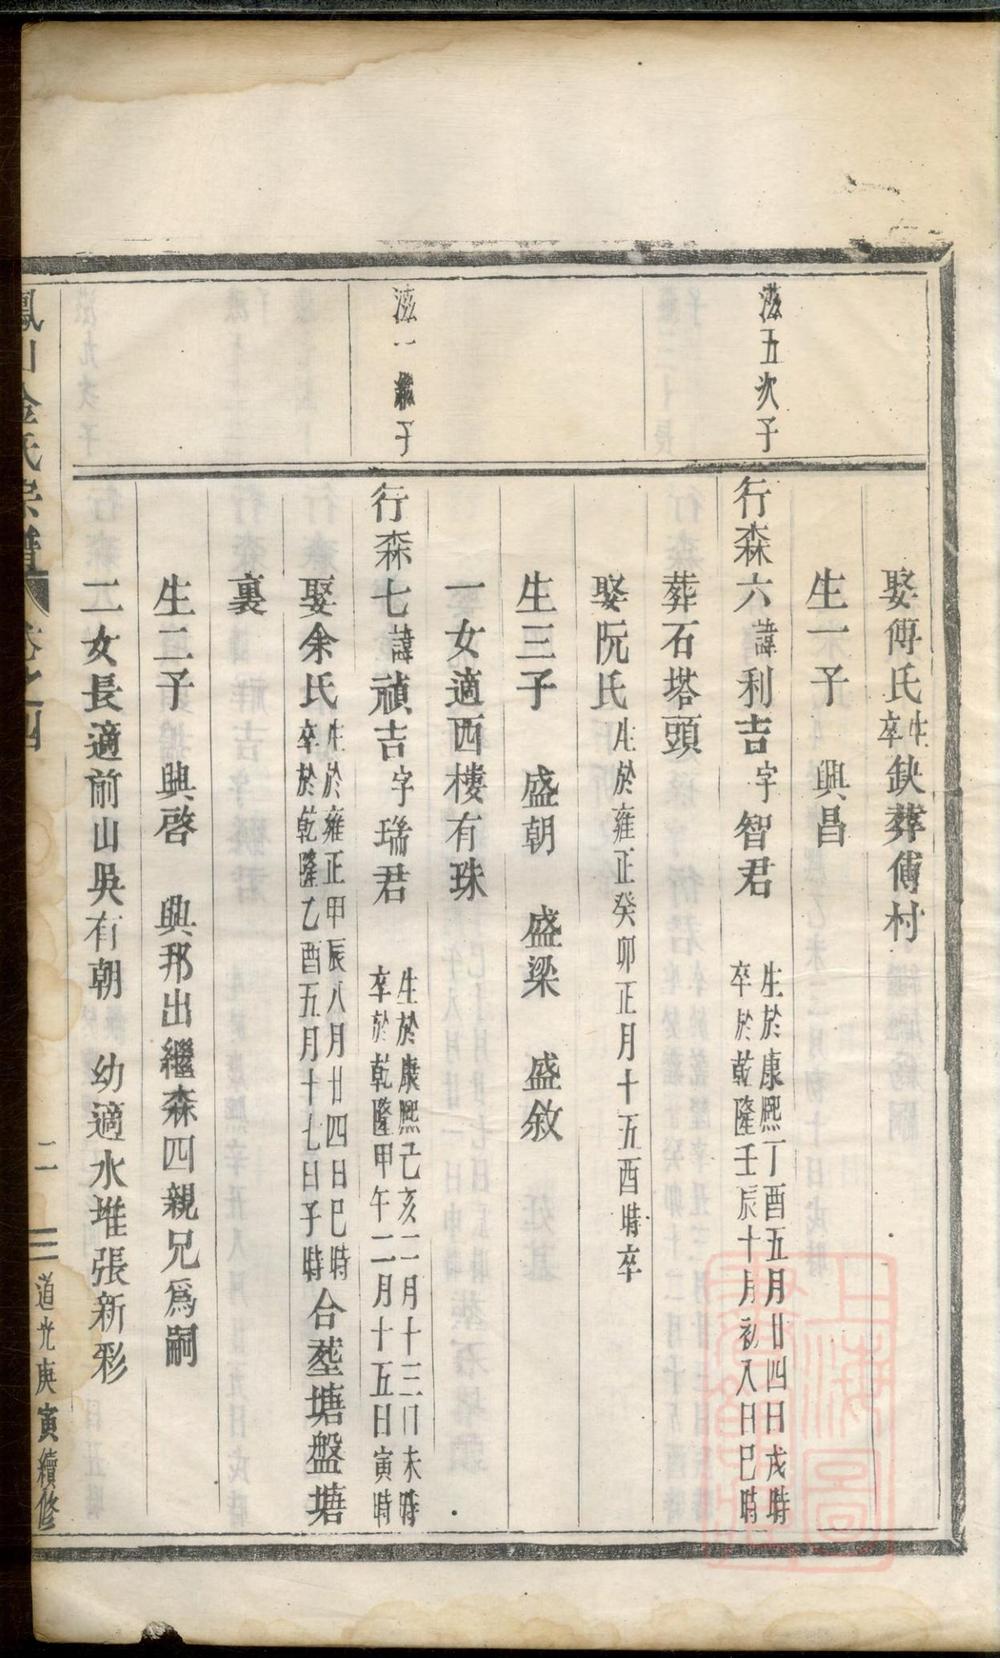 娶傅氏生卒缺葬傅村
生一子　興昌
滋五次子
行森六諱利吉字智君　生於康熙丁酉五月廿四日戌時
卒於乾隆壬辰十月初入日巳時
葬石塔頭
娶阮氏生於雍正癸卯正月十五酉時卒
生三子　盛朝　盛梁　盛敘
一女適西樓有珠
滋一繼子
行森七諱禎吉字瑞君　生於康熙己亥二月十三日未時
卒於乾隆甲午二月十五日寅時
娶余氏生於雍正甲辰八月廿四日巳時
卒於乾隆乙酉五月十七日子時合塟塘盤塘
裏
生二子　興啓　興邦出繼森四親兄爲嗣
二女長適前山吳有朝　幼適水堆張新彩
鳳山金氏宗譜　卷之四　二　三　道光庚寅續修
上海圖書館藏